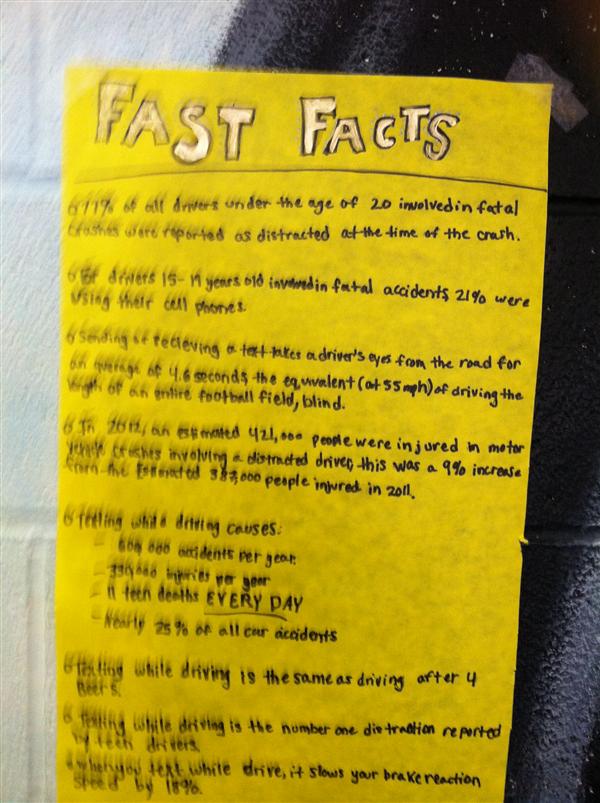 FAST FACTS
11% of all drivers under the age of 20 involved in fatal
crashes were reported as distracted at the time of the crash.
Of drivers 15-19 years old involved in fatal accidents, 21% were
using their cell phones.
Sending or recieving a text takes a driver's eyes from the road for
an average of 4.6 seconds, the equivalent (at 55 mph) of driving the
length of an entire football field, blind.
In 2012, an estimated 421,000 people were injured in motor
vehicle crashes involving a distracted driver, this was a 9% increase
from the estimated 387,000 people injured in 2011.
Texting while driving causes:
- accidents per year.
- 330,000 injuries per year
- 11 teen deaths EVERY DAY
- Nearly 25% of all car accidents
Texting while driving is the same as driving after 4
Beers.
Texting while driving is the number one distraction reported
by teen drivers.
when you text while drive, it slows your brake reaction
speed by 18%.